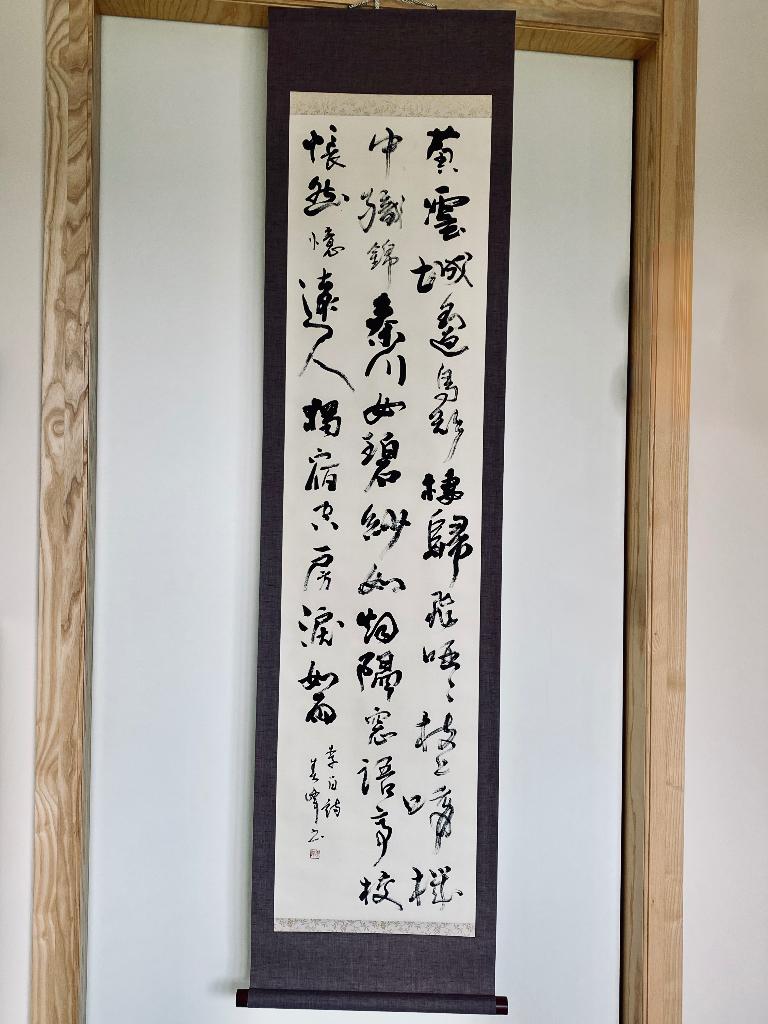 黄雲城邊烏欲棲歸飛啞〻枝上啼機
中織錦秦川女碧紗如烟隔窓語停梭
悵然憶遠人獨宿空房淚如雨
李白詩